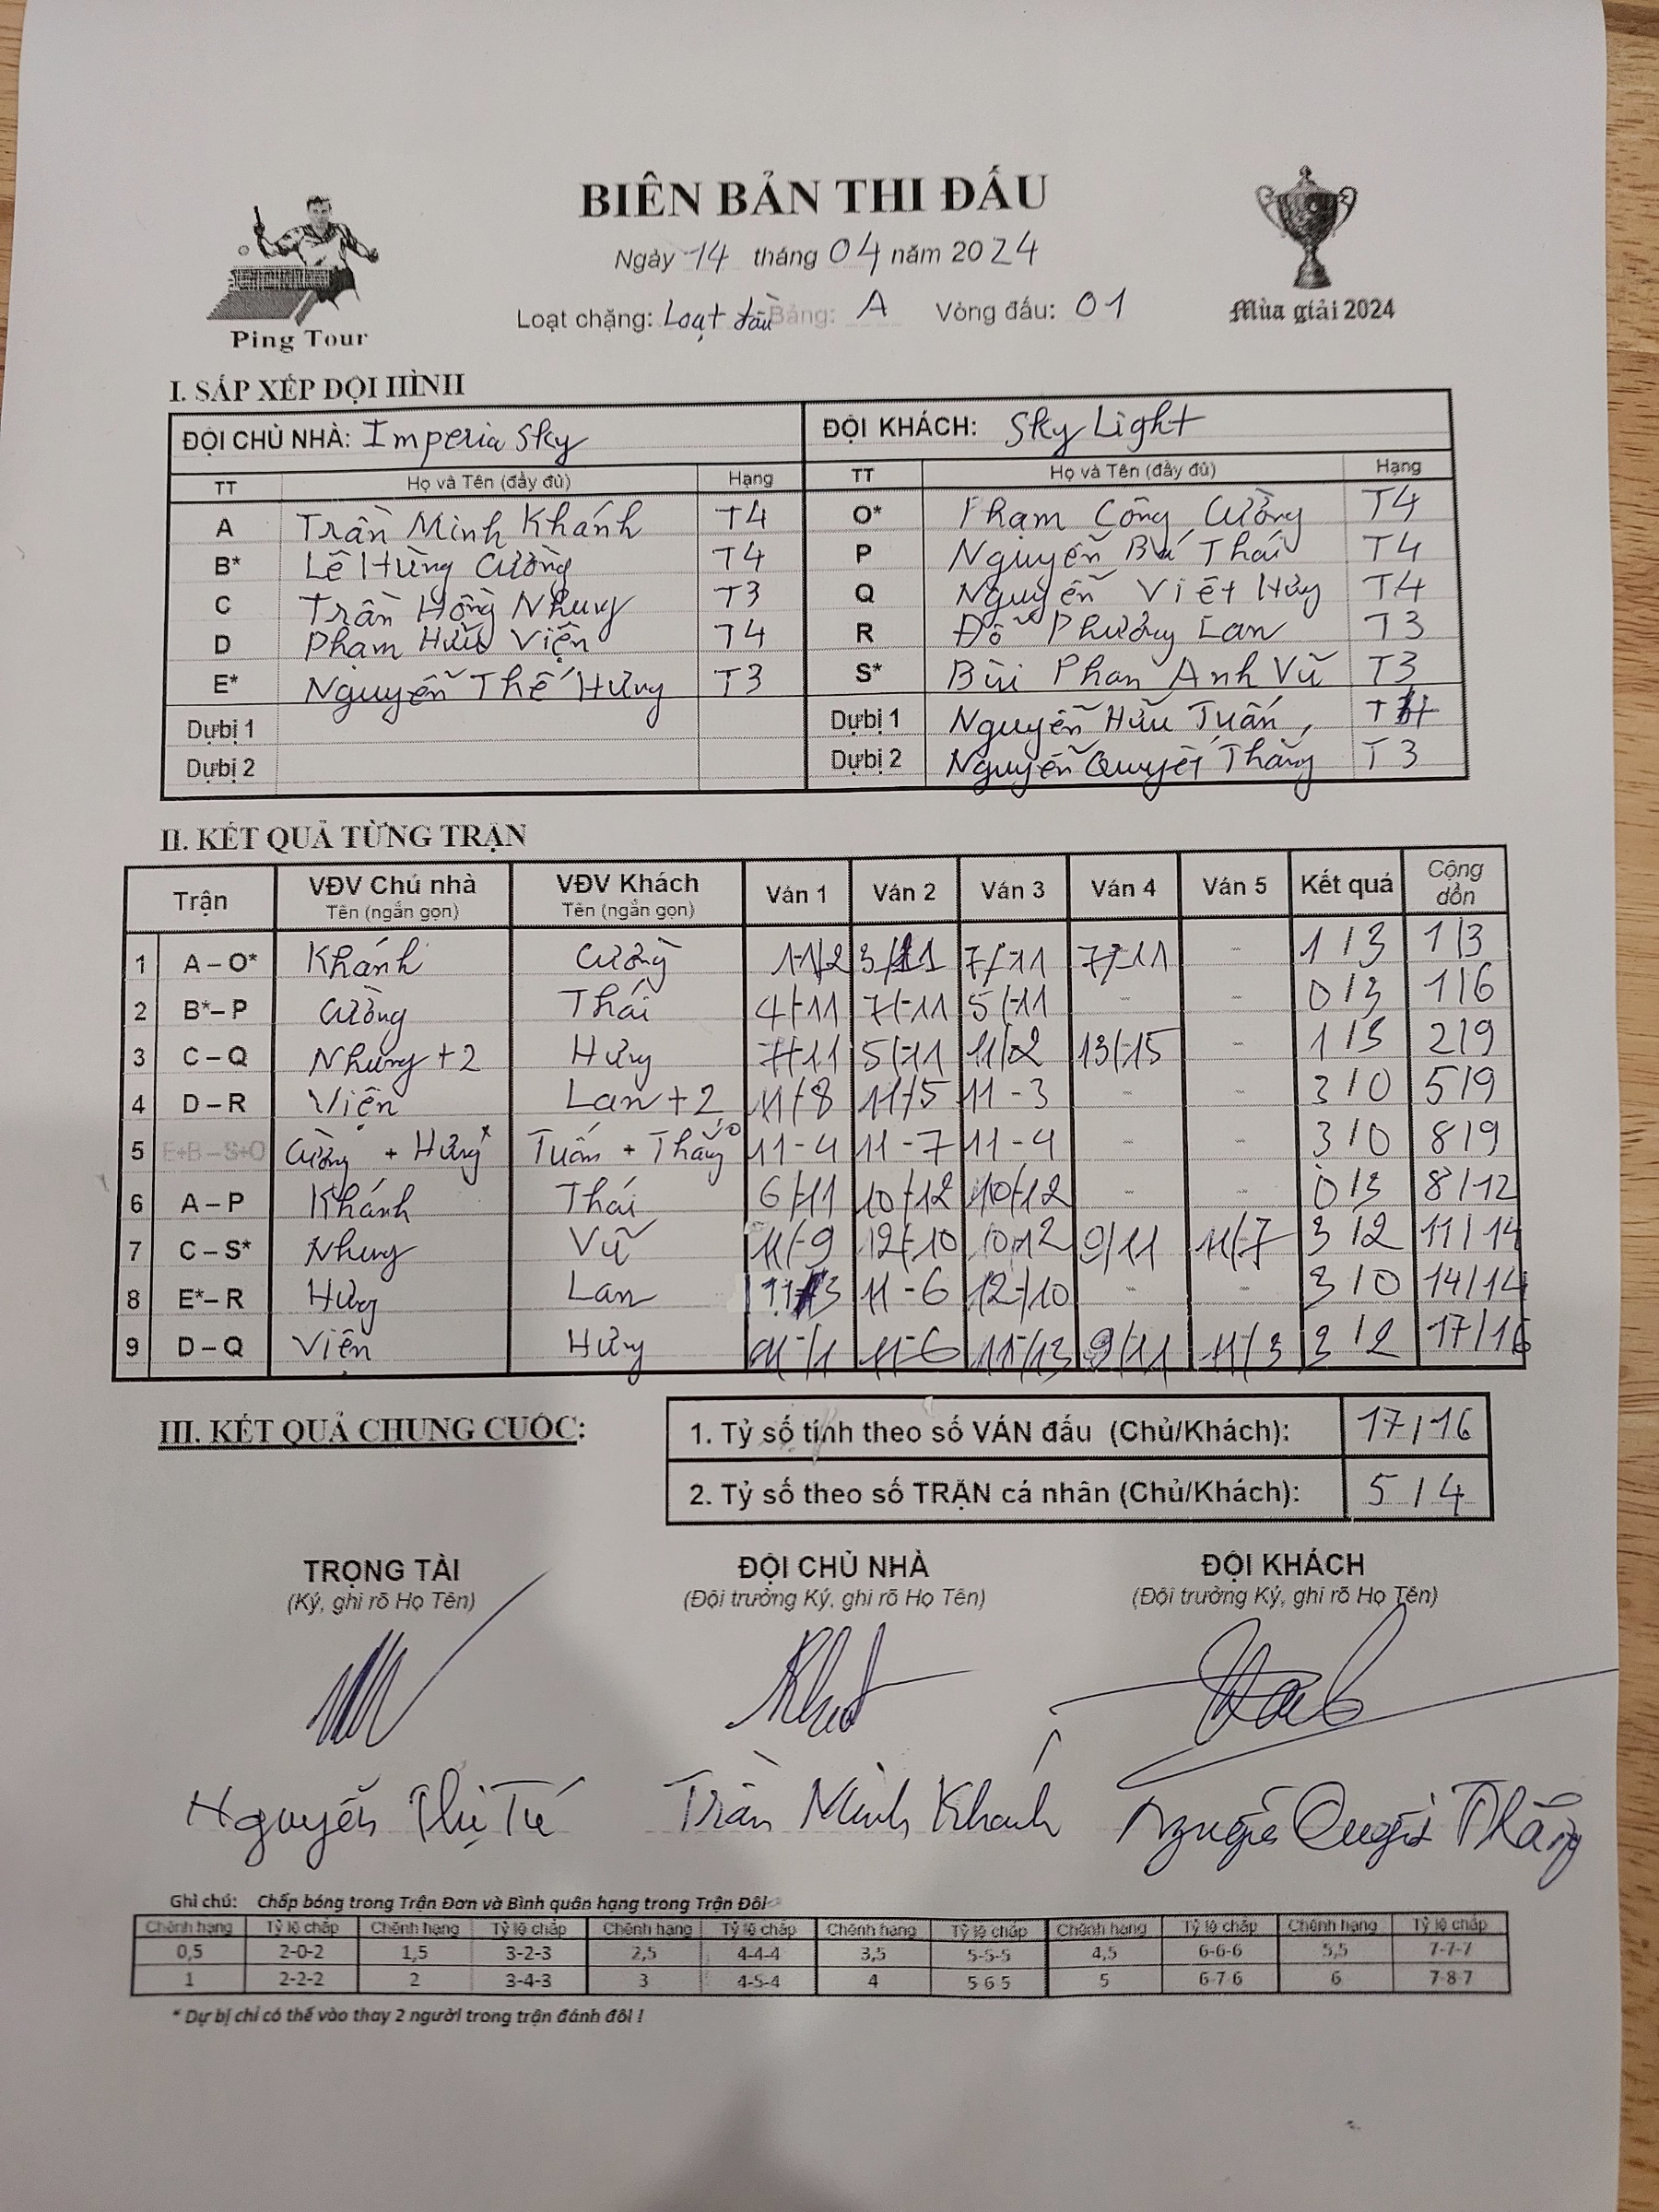 BIÊN BẢN THI ĐẤU
Ngày 14 tháng 04 năm 2024
Loạt chặng: Loạt đầu Bảng: A Vòng đấu: 01
Ping Tour
Mùa giải 2024
I. SẮP XẾP ĐỘI HÌNH
ĐỘI CHỦ NHÀ: Imperia Sky ĐỘI KHÁCH: Sky Light
TT Họ và Tên (đầy đủ) Hạng TT Họ và Tên (đầy đủ) Hạng
A Trần Minh Khánh T4 O* Phạm Công Cường T4
B* Lê Hùng Cường T4 P Nguyễn Bá Thái T4
C Trần Hồng Nhung T3 Q Nguyễn Việt Hưng T4
D Phạm Hữu Viện T4 R Đỗ Phương Lan T3
E* Nguyễn Thế Hưng T3 S* Bùi Phan Anh Vũ T3
Dự bị 1 Dự bị 1 Nguyễn Hữu Tuấn
Dự bị 2 Dự bị 2 Nguyễn Quyết Thắng T3
II. KẾT QUẢ TỪNG TRẬN
Trận VĐV Chủ nhà VĐV Khách Ván 1 Ván 2 Ván 3 Ván 4 Ván 5 Kết quả Cộng dồn
Tên (ngắn gọn) Tên (ngắn gọn)
1 A – O* Khánh Cường 11/2 3/11 7/-11 7/-11 - 1/3 1/3
2 B* – P Cường Thái 4/-11 7/-11 5/-11 - - 0/3 1/6
3 C – Q Nhung +2 Hưng 7/-11 5/-11 11/2 13/-15 - 1/3 2/9
4 D – R Viện Lan +2 11/-8 11/-5 11-3 - - 3/0 5/9
5 E+B – S+O Cường + Hưng Tuấn + Thắng 11-4 11-7 11-4 - - 3/0 8/9
6 A – P Khánh Thái 6/-11 10/-12 10/-12 - - 0/3 8/12
7 C – S* Nhung Vũ 11/-9 12/-10 10/12 9/11 11/-7 3/2 11/14
8 E* – R Hưng Lan 11-3 11-6 12/-10 - - 3/0 14/14
9 D – Q Viện Hưng 11-6 11-/13 9/11 11/3 3/2 17/16
III. KẾT QUẢ CHUNG CUỘC:
1. Tỷ số tính theo số VÁN đấu (Chủ/Khách): 17/16
2. Tỷ số theo số TRẬN cá nhân (Chủ/Khách): 5/4
TRỌNG TÀI ĐỘI CHỦ NHÀ ĐỘI KHÁCH
(Ký, ghi rõ Họ Tên) (Đội trưởng Ký, ghi rõ Họ Tên) (Đội trưởng Ký, ghi rõ Họ Tên)
Nguyễn Thị Tú Trần Minh Khánh Nguyễn Quyết Thắng
Ghi chú: Chấp bóng trong Trận Đơn và Bình quân hạng trong Trận Đôi
Chênh hạng Tỷ lệ chấp Chênh hạng Tỷ lệ chấp Chênh hạng Tỷ lệ chấp Chênh hạng Tỷ lệ chấp Chênh hạng Tỷ lệ chấp Chênh hạng Tỷ lệ chấp
0,5 2-0-2 1,5 3-2-3 2,5 4-4-4 3,5 5-5-5 4,5 6-6-6 5,5 7-7-7
1 2-2-2 2 3-4-3 3 4-5-4 4 5 6 5 5 6-7 6 6 7 8 7
* Dự bị chỉ có thể vào thay 2 người trong trận đánh đôi !